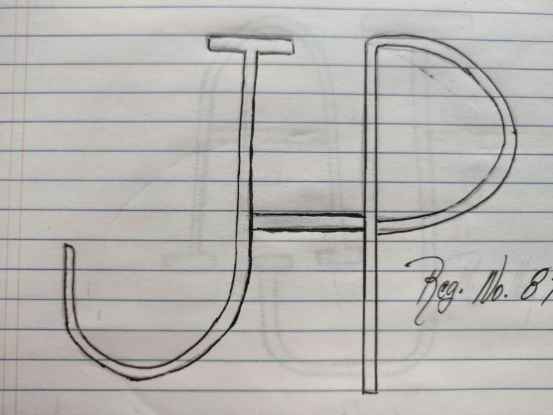 JP
Reg. No. 87